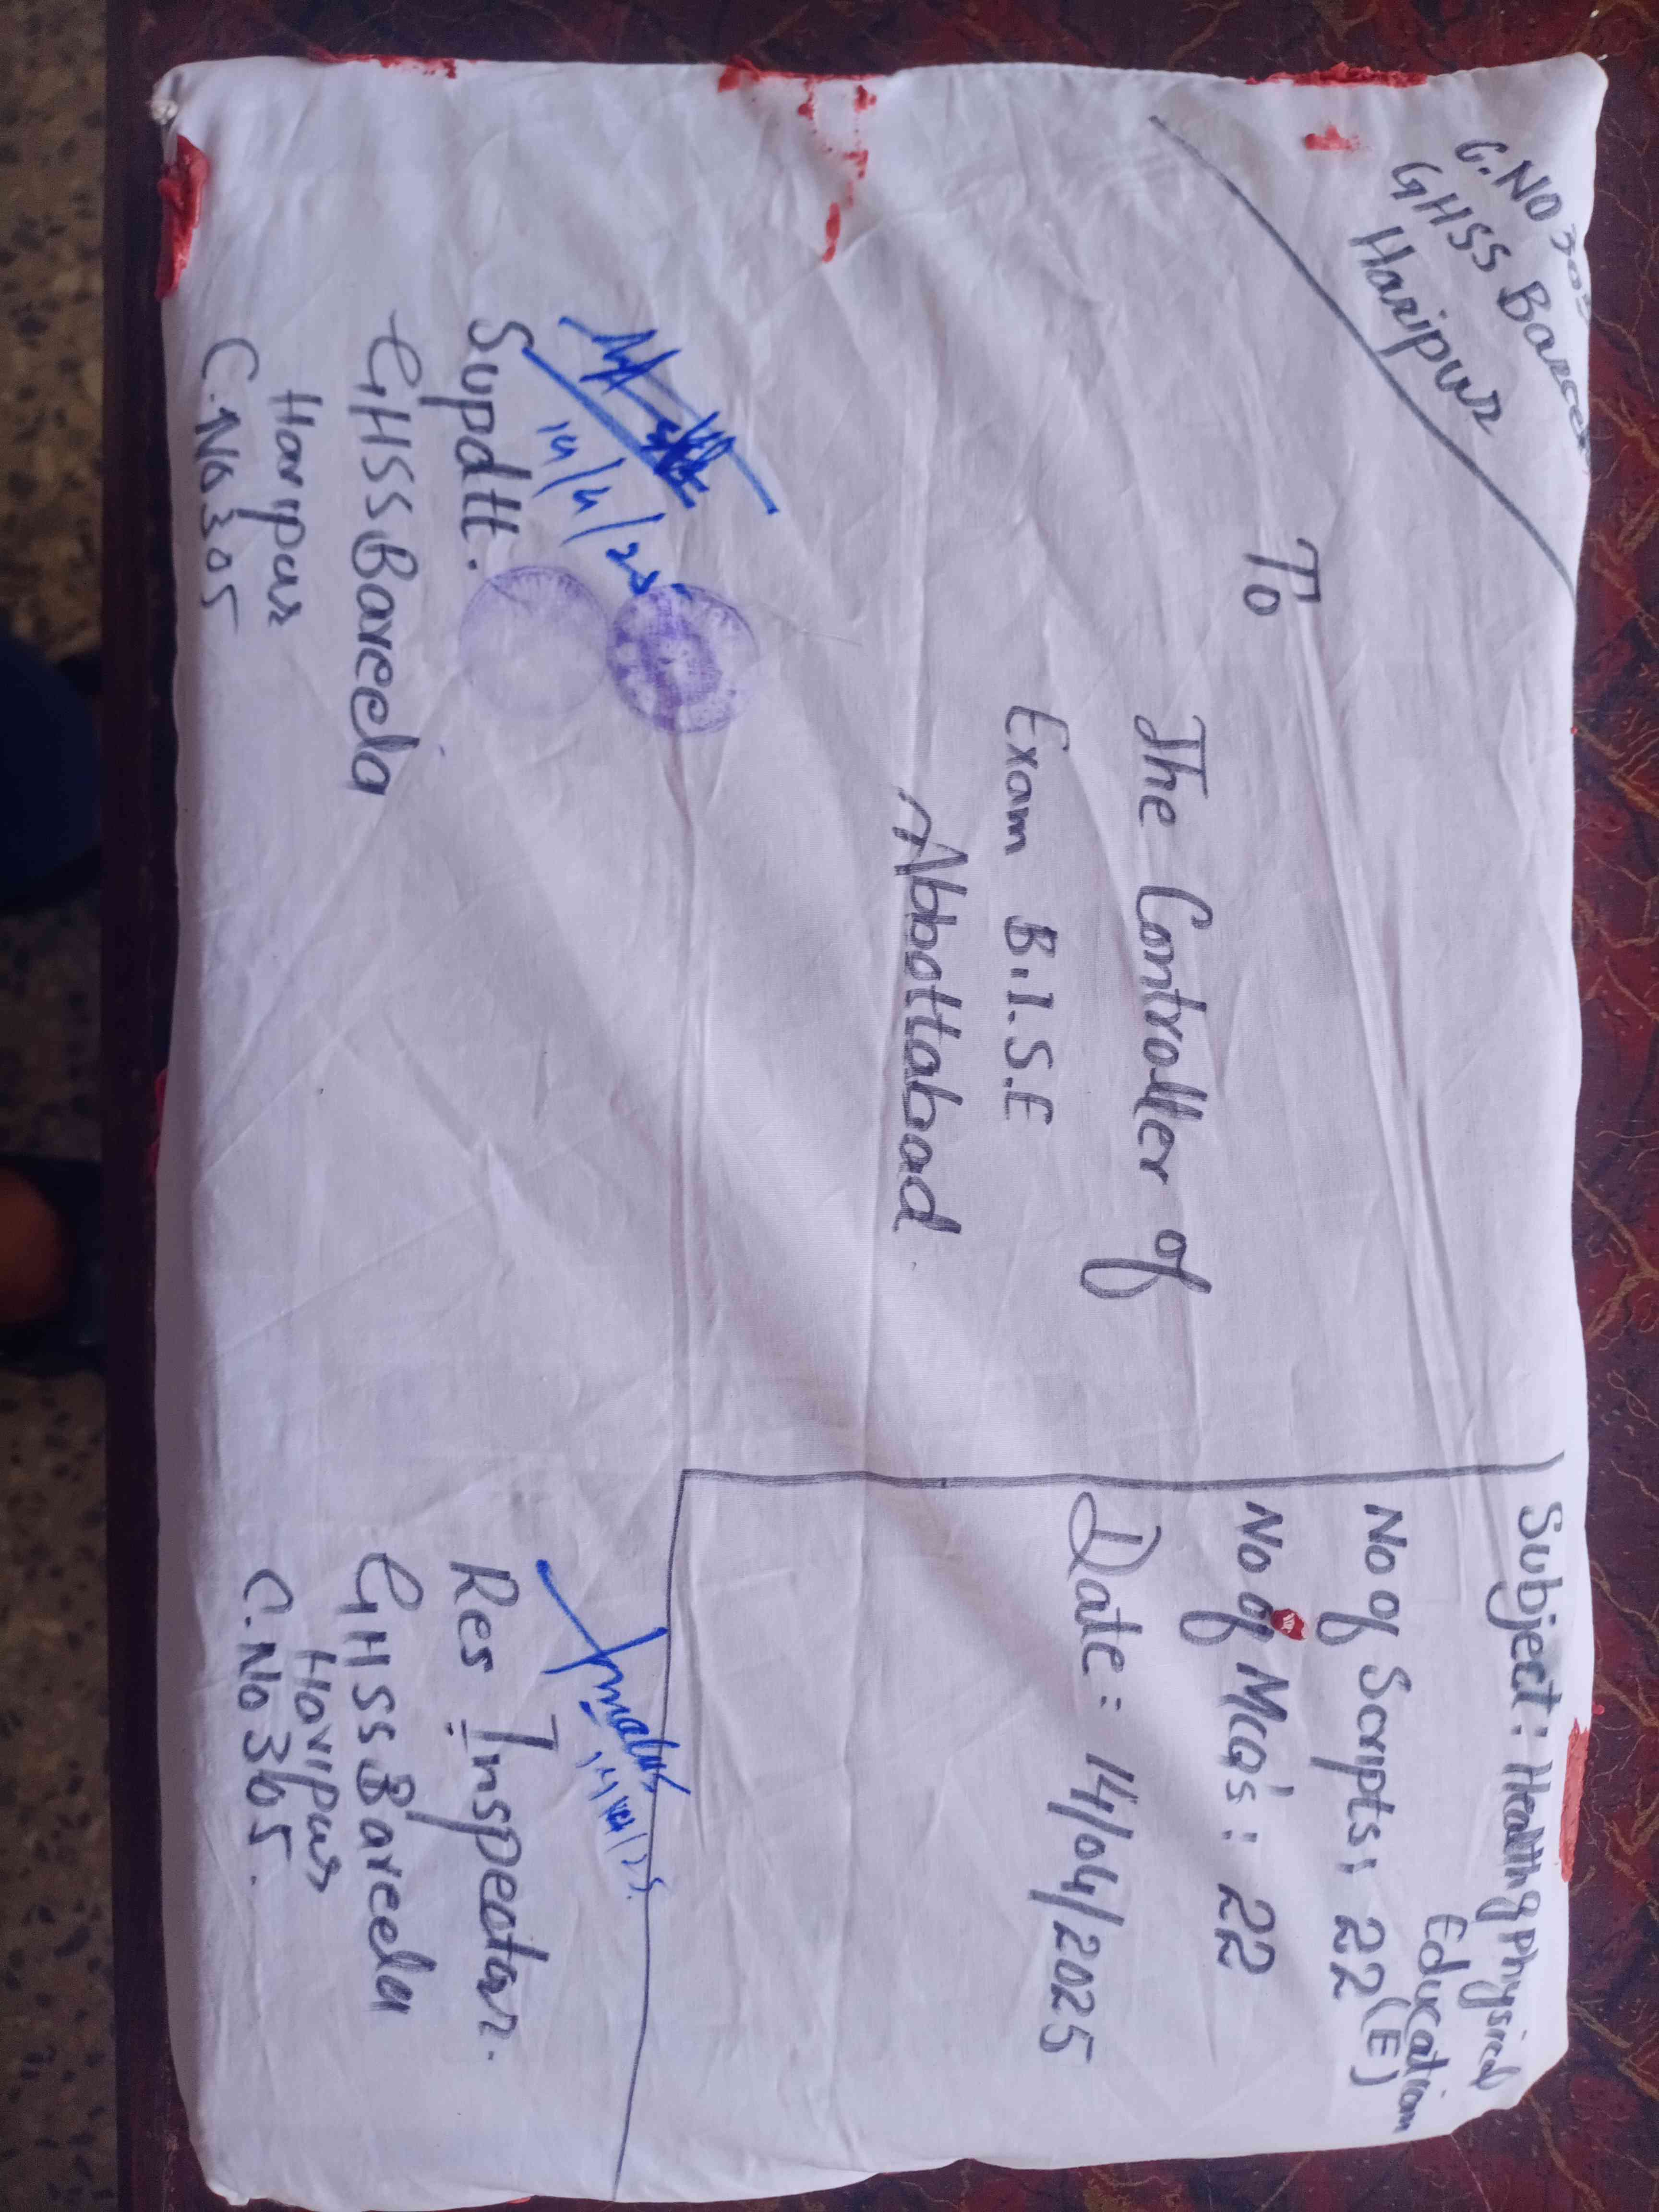 C.NO 305
GHSS Bareela
Haripur
To
The Controller of
Exam B.I.S.E
Abbottabad
Subject: Health & Physical
Education
No of Scripts: 22 (E)
No of Mcq's: 22
Date: 14/04/2025
14/4/25
Supdtt.
GHSS Bareela
Haripur
C.No 305
Res Inspector.
GHSS Bareela
Haripur
C.No 305.